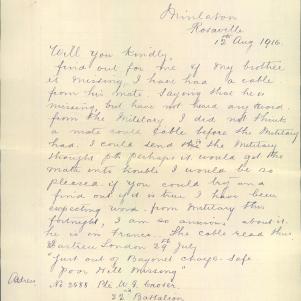 Minlaton
Rosaville
12th Aug 1916
Will you kindly
find out for me if my brother
is missing, I have had a cable
from his mate. Saying that he is
missing, but have not heard any word
from the Military I did not think
a mate could cable before the Military
had. I could send the Military
thought perhaps it would get the
mate into trouble I would be so
pleased if you could try and
find out if it is true I have been
expecting word from Military this
fortnight, I am so anxious about it
he is in France. The cable read thus
London 29th July
"Just out of Bayonet charge. Safe
Poor Will Missing"
Address No 2688 Pte W. J.
32nd Battalion